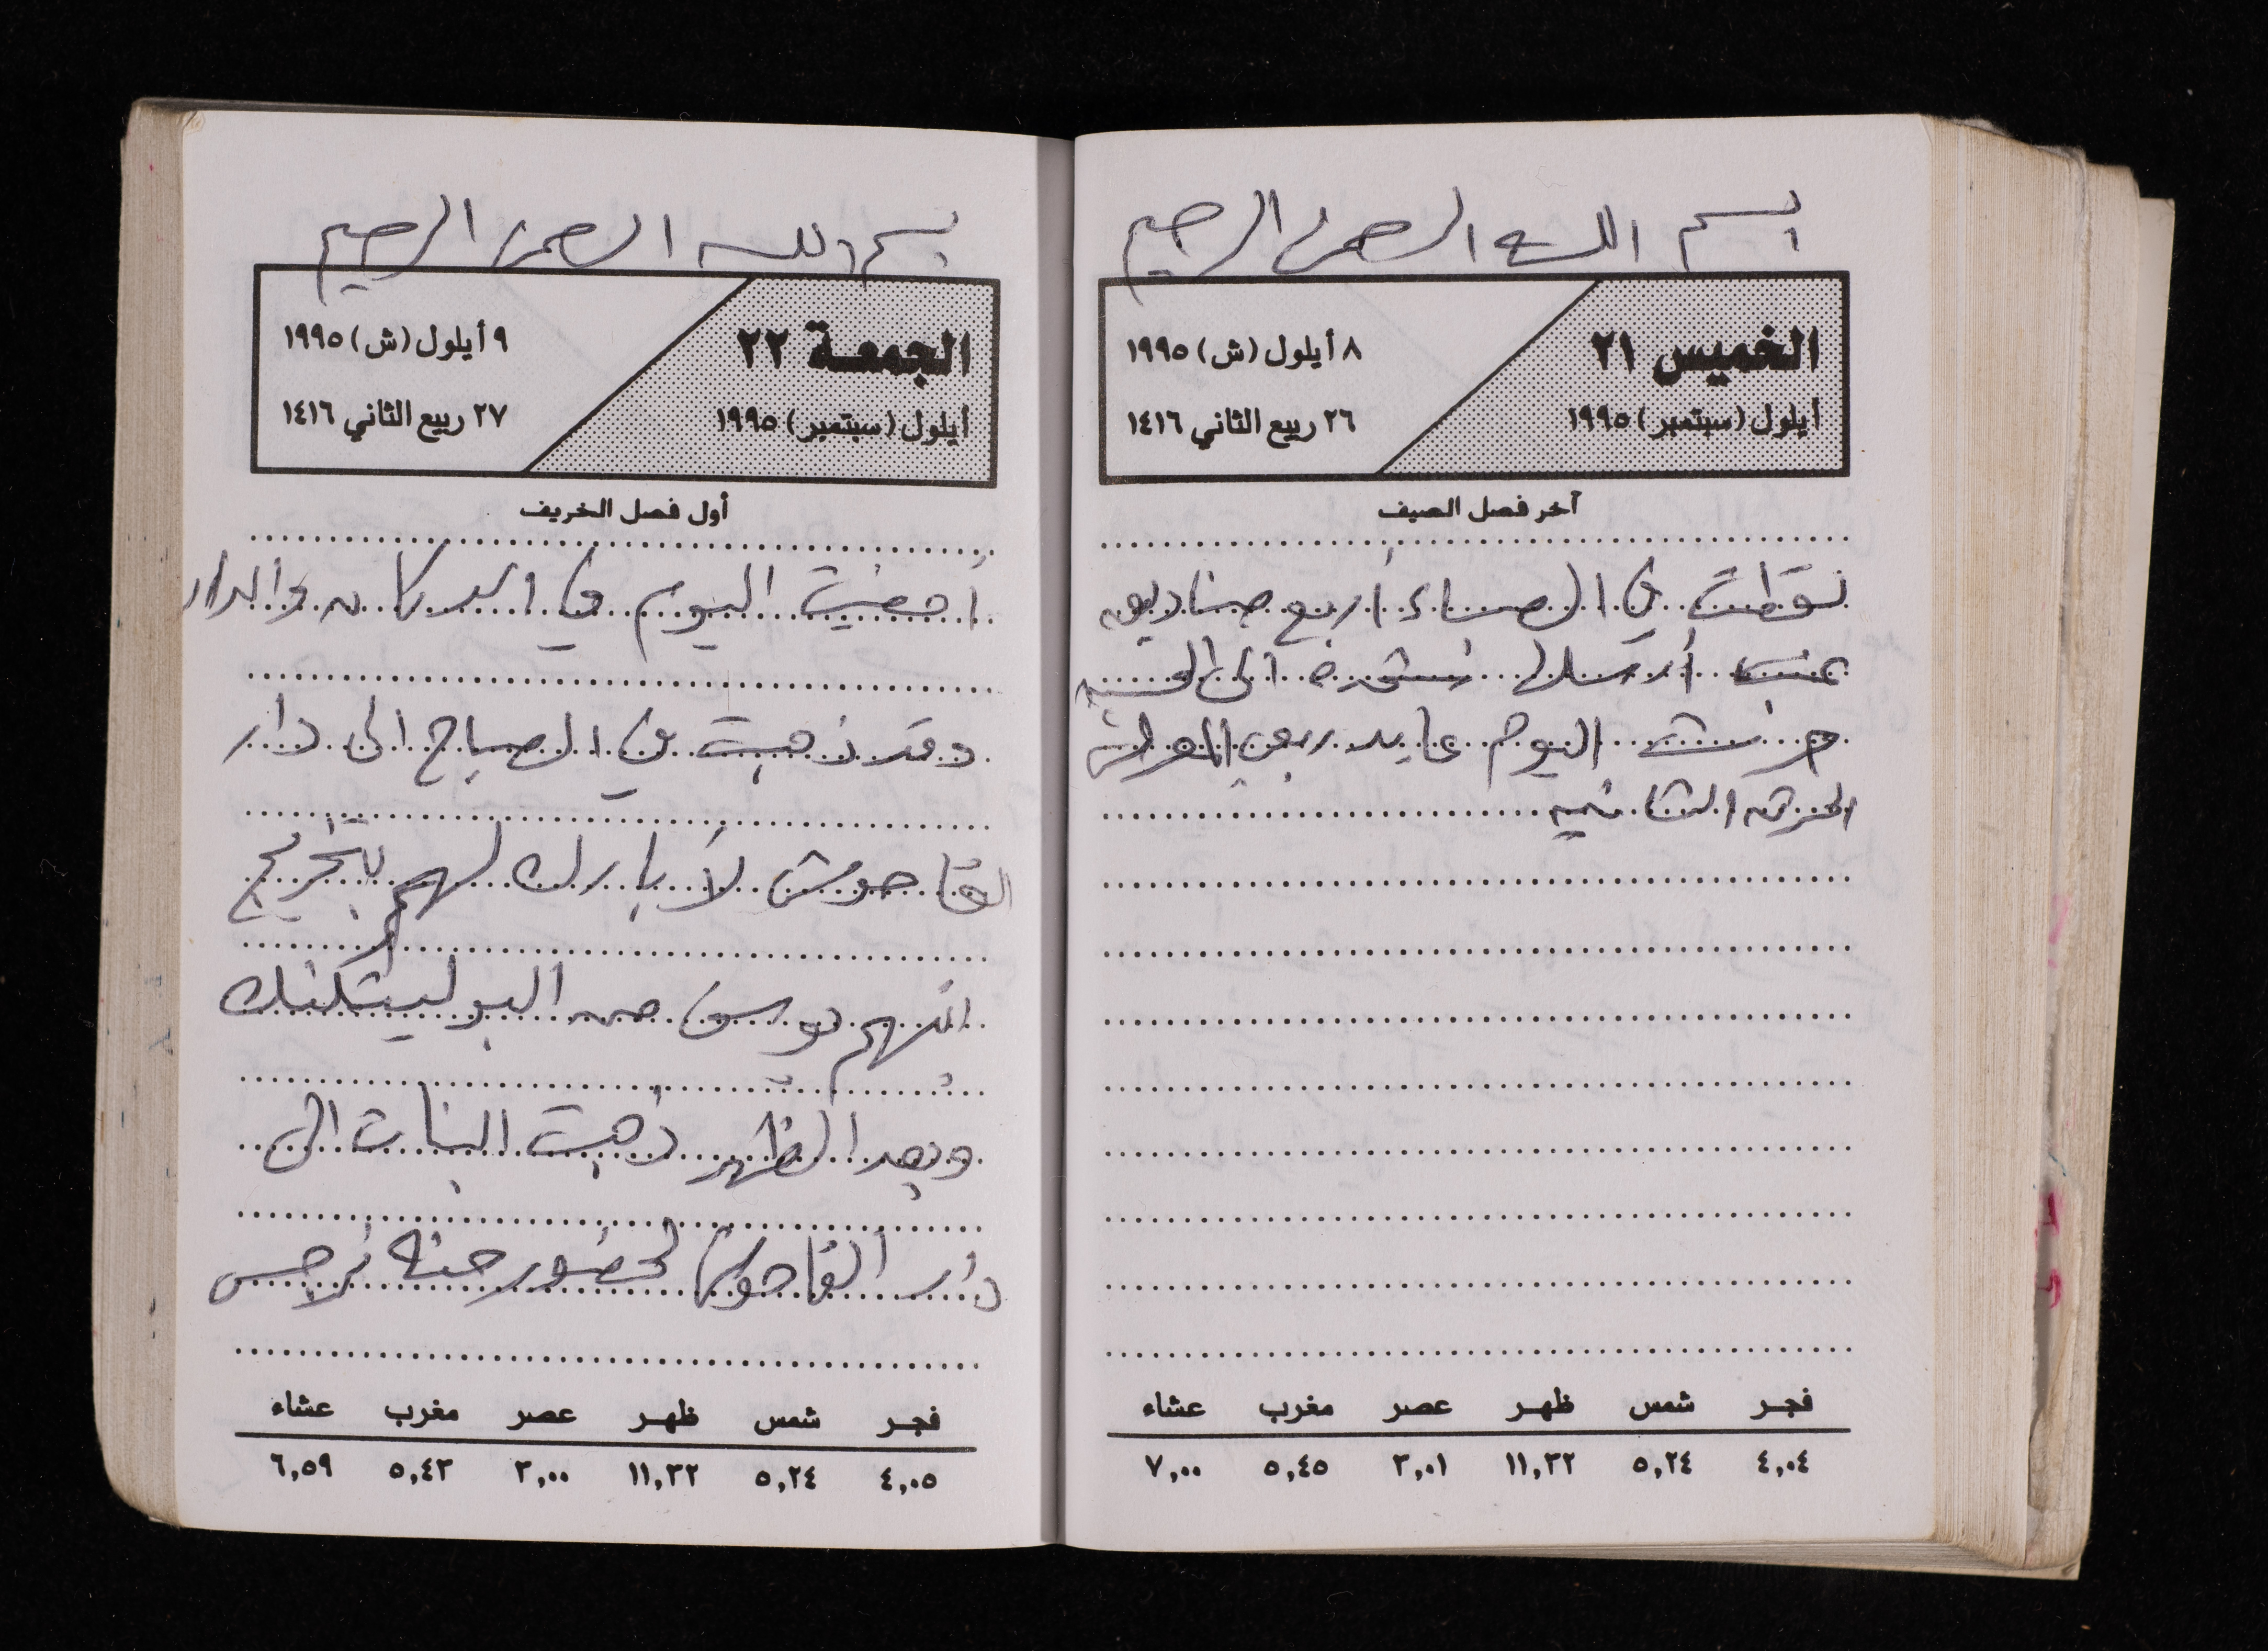 بسم اللـه الرحمن الرحيم
الخميس ٢١
أيلول (سبتمبر) ١٩٩٥
٨ أيلول (ش) ١٩٩٥
٢٦ ربيع الثاني ١٤١٦
آخر فصل الصيف
نقطت في المساء أربع صناديق
عنب أرسلها شحده الى الحسبه
حرثت اليوم عابد ربعي المعرش
الحرثه الثانيه
فجر شمس ظهر عصر مغرب عشاء
٤,٠٤ ٥,٢٤ ١١,٣٢ ٣,٠١ ٥,٤٥ ٧,٠٠
بسم اللـه الرحمن الرحيم
الجمعة ٢٢
أيلول (سبتمبر) ١٩٩٥
٩ أيلول (ش) ١٩٩٥
٢٧ ربيع الثاني ١٤١٦
أول فصل الخريف
أمضيت اليوم في الدكان والدار
وقد ذهبت في الصباح الى دار
القاحوش لأبارك لهم بتخريج
ابنهم من البوليتكنك
وبعد الظهر ذهبت البنات الى
دار القاحوش لحضور حنه نرجس
فجر شمس ظهر عصر مغرب عشاء
٤,٠٥ ٥,٢٤ ١١,٣٢ ٣,٠٠ ٥,٤٣ ٦,٥٩